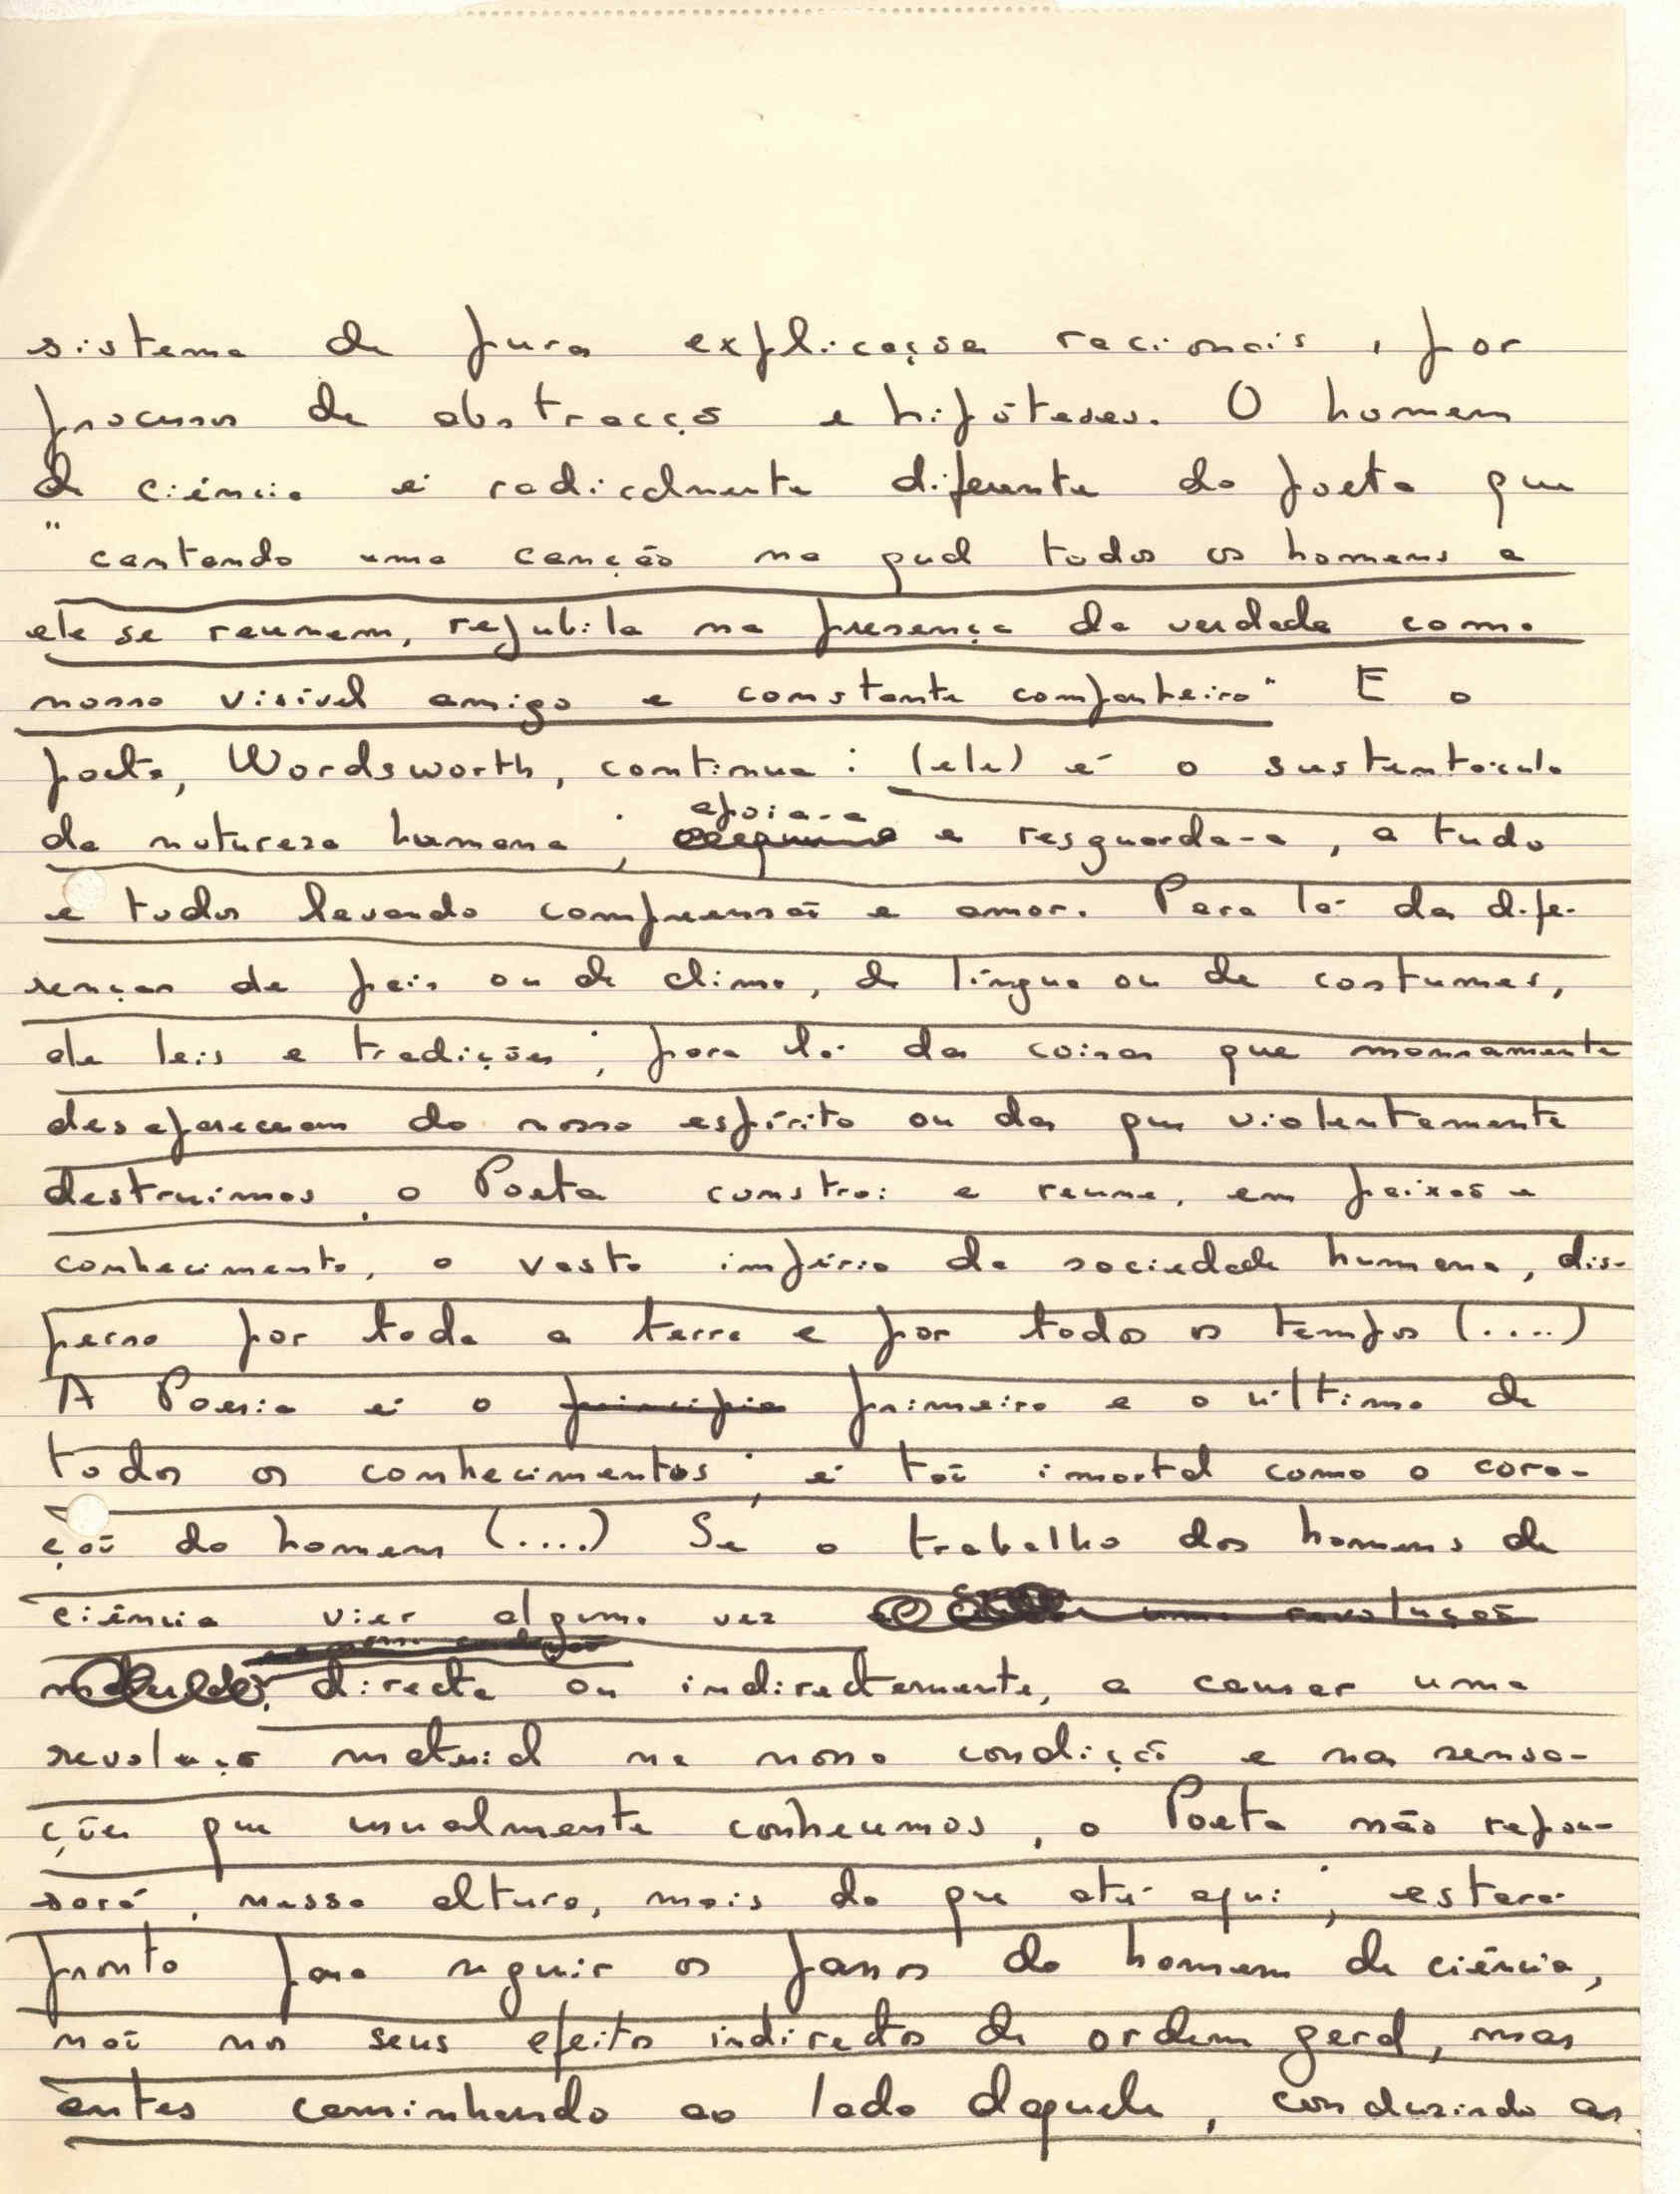 sistema de puras explicações racionais, por
processos de abstracção e hipóteses. O homem
de ciência é radicalmente diferente do poeta que
"cantando uma canção na qual todos os homens a
ele se reunem, rejubila na presença da verdade como
nosso visível amigo e constante companheiro" E o
poeta, Wordsworth, continua: (ele) é o sustentáculo
da natureza humana; apoia-a e resguarda-a, a tudo
e todos levando compreensão e amor. Para lá das dife-
renças de país ou de clima, de língua ou de costumes,
de leis e tradições; para lá das coisas que mansamente
desapareceram do nosso espírito ou das que violentemente
destruimos, o Poeta constroi e reune, em paixão e
conhecimento, o vasto império da sociedade humana, dis-
perso por toda a terra e por todos os tempos (....)
A Poesia é o principio primeiro e o último de
todos os conhecimentos; é tão imortal como o cora-
ção do homem (....) Se o trabalho dos homens de
ciência vier alguma vez uma revolução
directa ou indirectamente, a causar uma
revolução material na nossa condição e nas sensa-
ções que usualmente conhecemos, o Poeta não repou-
sará, nessa altura, mais do que até aqui; estará
pronto para seguir os passos do homem de ciência,
não nos seus efeitos indirectos de ordem geral, mas
antes caminhando ao lado daquele, conduzindo as